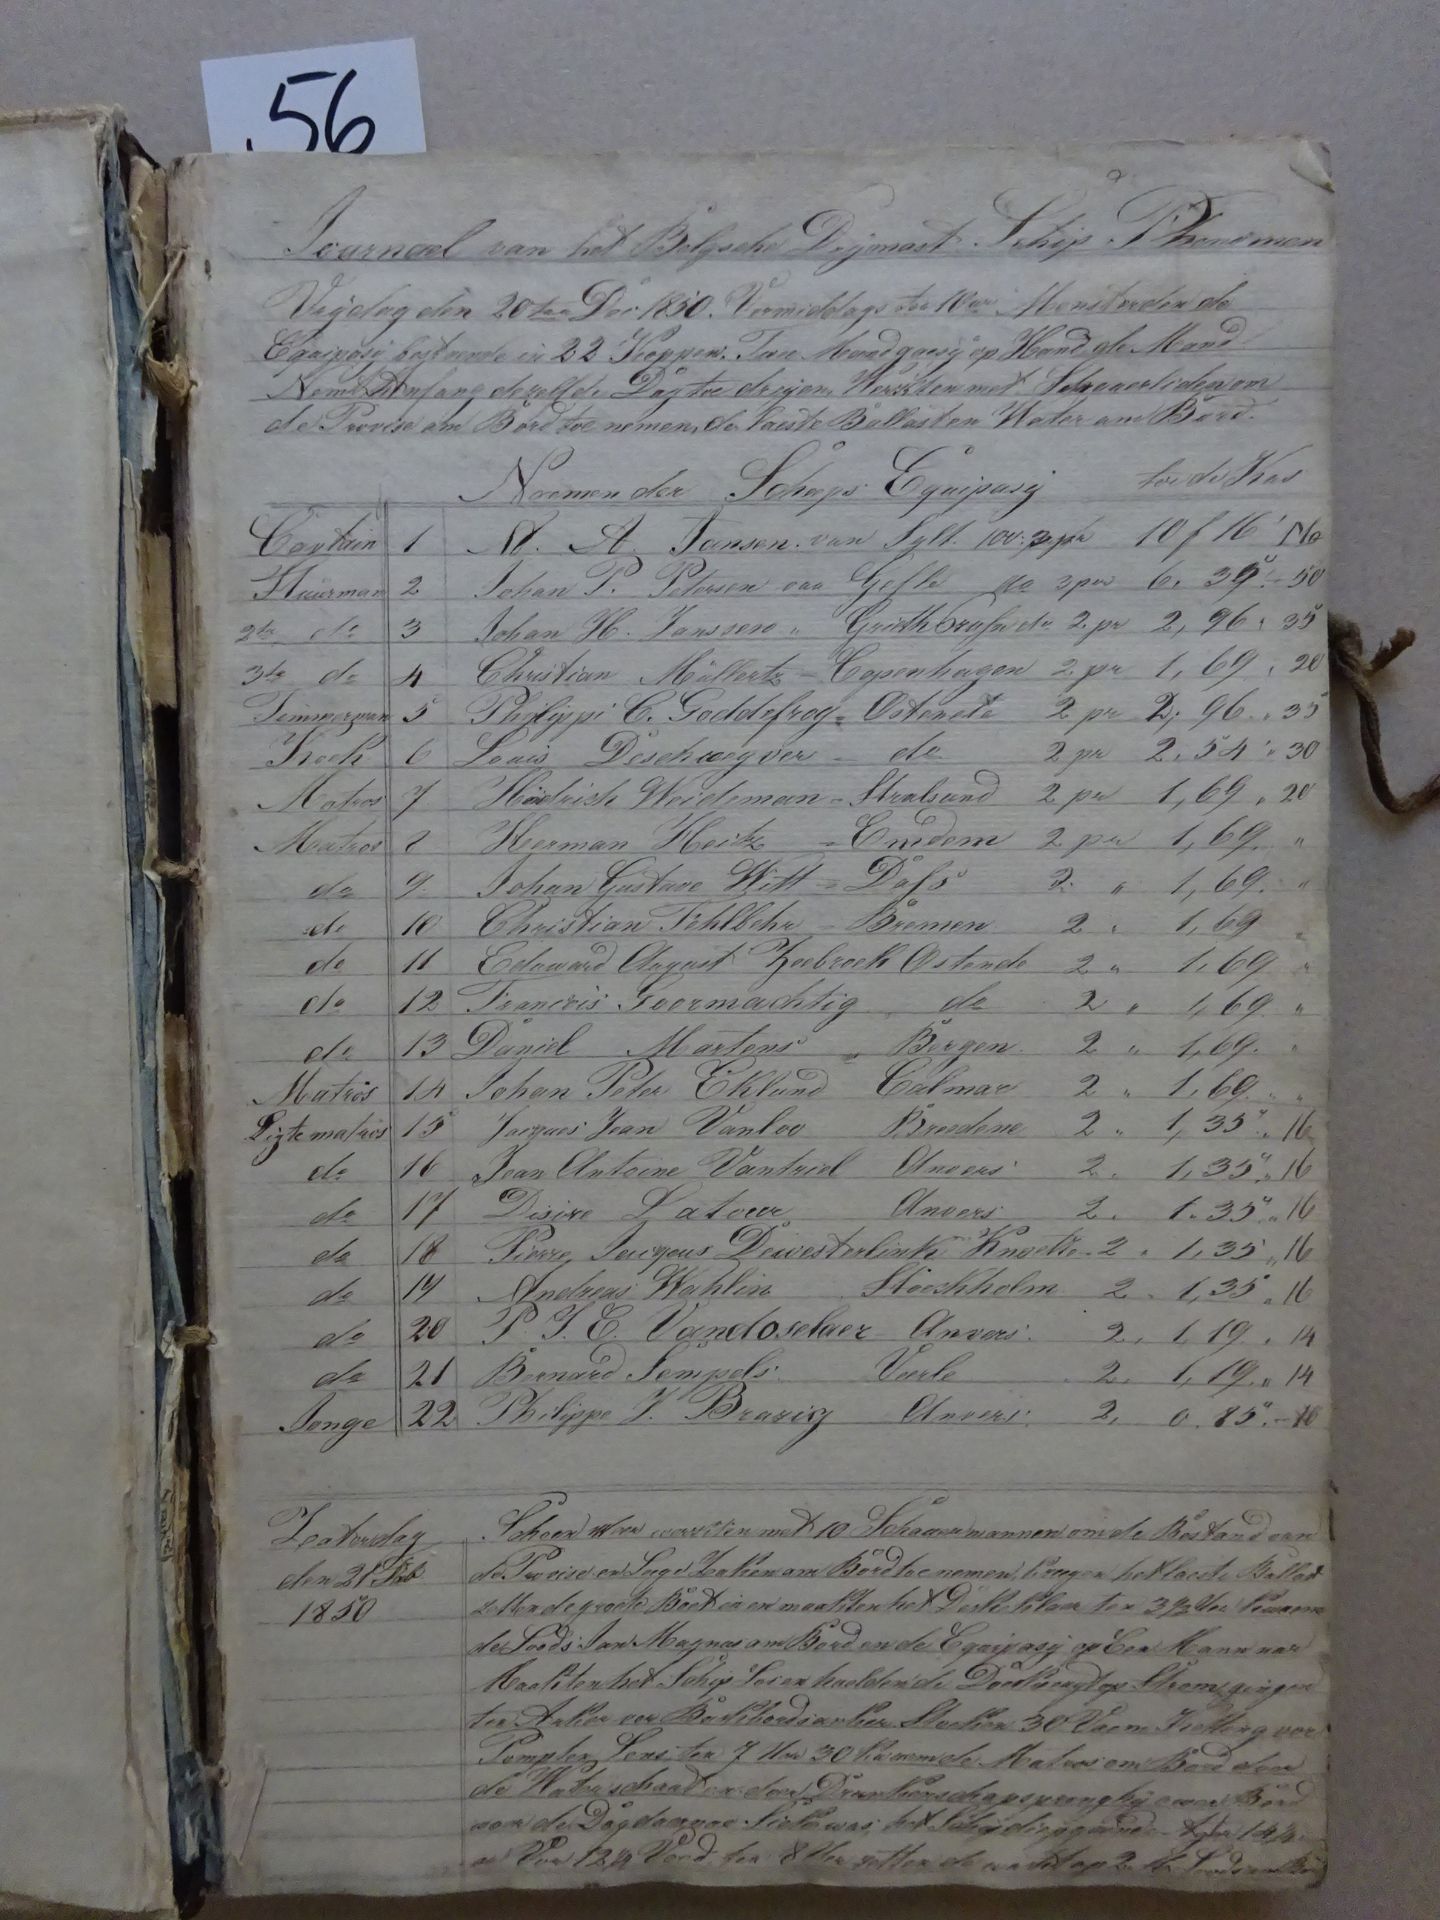 56
Journael van het Belgsche Dryemast Schip Phenomen
Vrydag den 20ten Dec 1850. Vormiddags ten 10 ur Monsterden de
Equipasy bestoende in 22 Koppen. Twe Maand gaesy op Hand de Mand
Nemt Anfang dezelfde Dag toe dreyen. Werkten met om
de Provise am Bord toe nemen, de laeste Ballast en Water am Bord.
Noemen der Scheeps Equipasy toe de Kas
Captain 1 N. A. Jansen van Sylt 10 f 16
Stuurman 2 Johan P. Petersen van Gefle do 3 pr 6, 35 50
2de do 3 Johan H. Janssen do 2 pr 2, 96 " 35
3de do 4 Christian Möllertz = Copenhagen 2 pr 1, 69 " 20
Temmerman 5 Philippi C. Goddefroy = Ostende 2 pr 2, 96 " 35
Kock 6 Louis Deschwegver = do 2 pr 2, 54 " 30
Matros 7 Hindrich Weideman = Stralsund 2 pr 1, 69 " 20
Matros 8 Herman Heitz = Emdem 2 pr 1, 69 "
do 9 Johan Gustave Witt = 2 " 1, 69 "
do 10 Christian Fehlbehr = Bremen 2 " 1, 69 "
do 11 Edward August Zeebroek Ostende 2 " 1, 69 "
do 12 Francois Goormachtig do 2 " 1, 69 "
do 13 Daniel Martens " Bergen 2 " 1, 69 "
Matros 14 Johan Peter Eklund Calmar 2 " 1, 69 " "
Ligte matros 15 Jacques Jean Vanloo Breedene 2 " 1, 35 " 16
do 16 Jean Antoine Vantriel Anvers 2 " 1, 35 " 16
do 17 Disire Latour Anvers 2 " 1, 35 " 16
do 18 Pierre Jacques Dewesterlink Knocke 2 " 1, 35 " 16
do 19 Andreas Wahlin Stockholm 2 " 1, 35 " 16
do 20 P. J. E. Vandoselaer Anvers 2 " 1, 19 " 14
do 21 Bernard Tempels Vorle 2 " 1, 19 " 14
Jonge 22 Philippe J. Anvers 2, 0, 85 - 10
Zatersdag den 21 Dec 1850
werkten met 10 Schauermannen om de Bestand van
de Provise en Zaken am Bord toe nemen, kregen het laeste Ballast
zetten de groote Boot in en maakten het Dek klaer ten 3½ Uer kwam
de Loods Jan Magnus am Bord en de Equipasy op Een Mann nar
Maakten het Schip Los en haelden de op Strom, gingen
ter Anker vor Backbordsanker Stoeken 30 Vaem Ketting vor
Pompten Lens, ten 7 Uer 30 kwam de Matros am Bord
de en door Drunkenschap sprong hy over Bord
de Dag was, het Schip
Vor 12¼ Voed ten 8 Uer zetten de wacht op 2 Loods am Bord